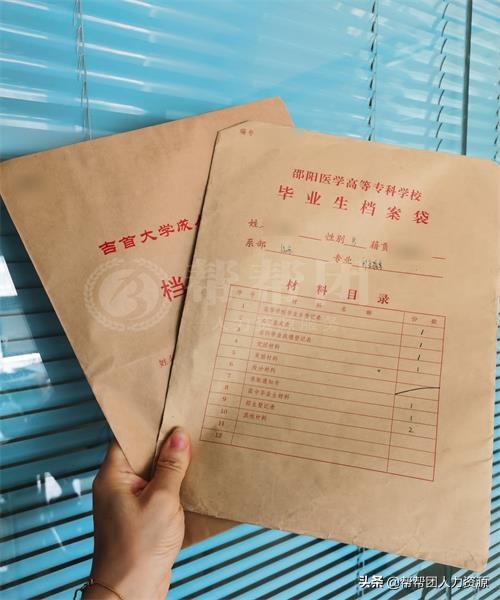 编号
邵阳医学高等专科学校
毕业生档案袋
姓 性别 男 籍贯
系部 专业
材料目录
序号 材料名称 份数
1 高等学校毕业生登记表 1
2 实习鉴定表 1
3 学科毕业成绩登记表 1
4 党团材料 1
5 奖励材料
6 处分材料
7
8 高中毕业生材料
9 招生登记表 1
10 其他材料 1
11 2
12
吉首大学成
档
姓
帮帮团
头条 @帮帮团人力资源